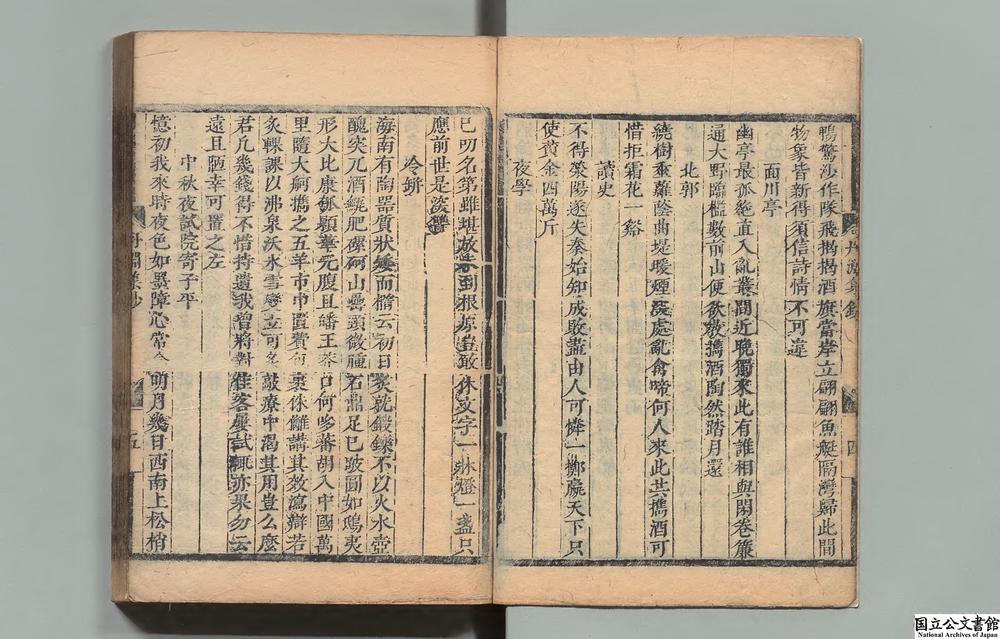 鴨驚沙作隊飛搗搗酒旗當岸立翩翩魚艇隔灣歸此間
物象皆新得須信詩情不可違
面川亭
幽亭最孤絕直入亂叢間近晚獨來此有誰相與閑卷簾
通大野臨檻數前山便欲攜酒陶然踏月還
北郭
繞樹垂蘿蔭曲堤暖煙深處亂禽啼何人來此共攜酒可
惜拒霜花一谿
讀史
不得滎陽遂失秦始知成敗盡由人可憐一擲贏天下只
使黃金四萬斤
夜學
已叨名第雖堪放未到根源豈敢休文字一牀燈一盞只
應前世是深讎
冷缾
海南有陶器質狀矮而橢云初日烹就鍛鍊不以火水壺
醜突兀酒鋴肥礧砢山罍頭微腫石鼎足已跛圓如鴟夷
形大比康瓠顆華元腹且皤王莽口何哆蕃胡入中國萬
里隨大舸攜之五羊市中置費
炙輠課以沸泉沃冰雪變立可
敲療中渴其用豈么麼
君凡幾錢得不惜持遺我曾將對佳客屢試輒亦果勿云
遠且陋幸可置之左
中秋夜試院寄子平
憶初我來時夜色如墨障心常
萌月幾日西南上松梢
丹淵集鈔
四
五
国立公文書館
National Archives of Japan